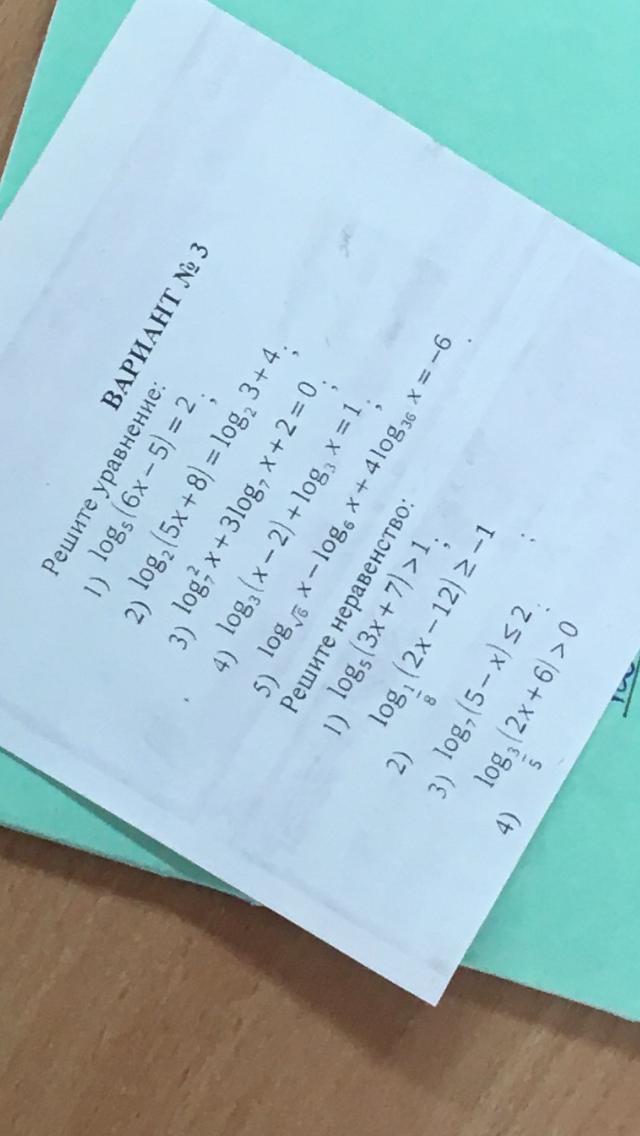 ВАРИАНТ № 3
Решите уравнение:
1) log₅(6x − 5) = 2 ;
2) log₂(5x + 8) = log₂ 3 + 4 ;
3) log₇² x + 3log₇ x + 2 = 0 ;
4) log₃(x − 2) + log₃ x = 1 ;
5) log_√6 x − log₆ x + 4log₃₆ x = −6 .
Решите неравенство:
1) log₅(3x + 7) > 1 ;
2) log_1/8 (2x − 12) ≥ −1 ;
3) log₇(5 − x) ≤ 2 ;
4) log_3/5 (2x + 6) > 0